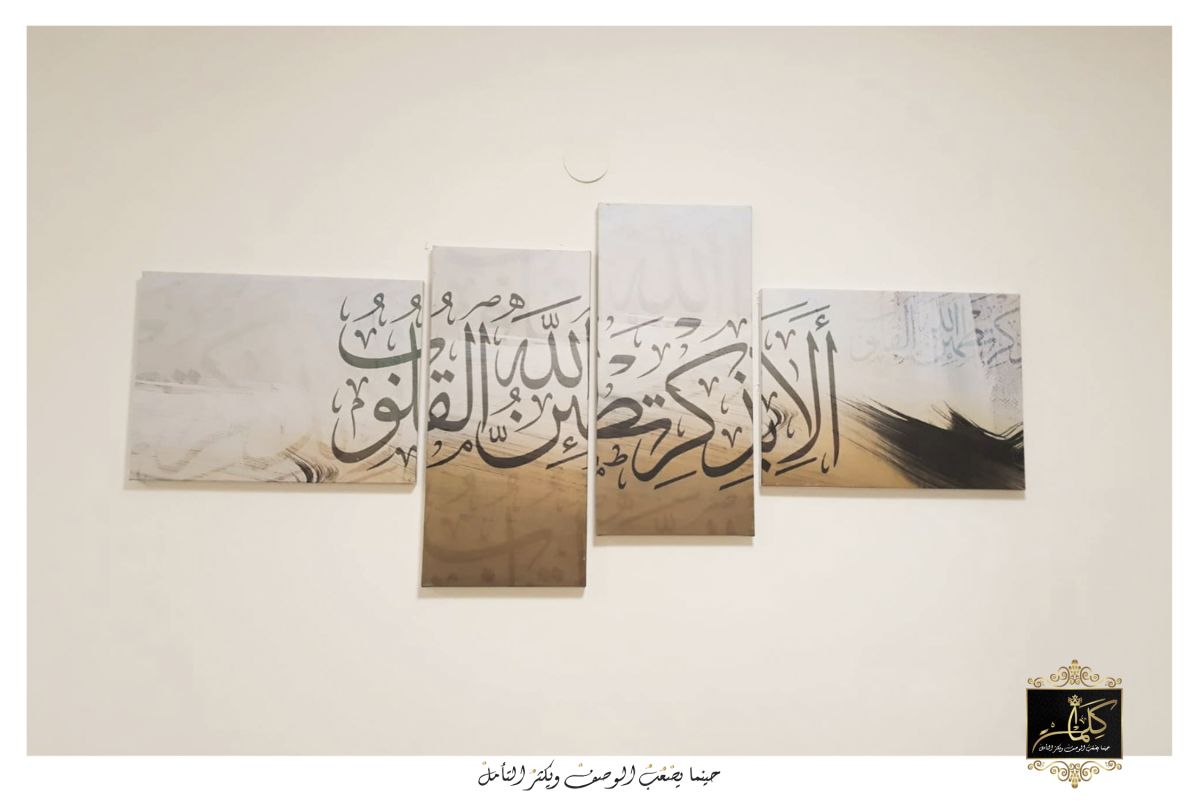 ألا بذكر الله تطمئن القلوب
كلمات
حينما يصعب الوصف ويكثر التأمل
حينما يصعب الوصف ويكثر التأمل